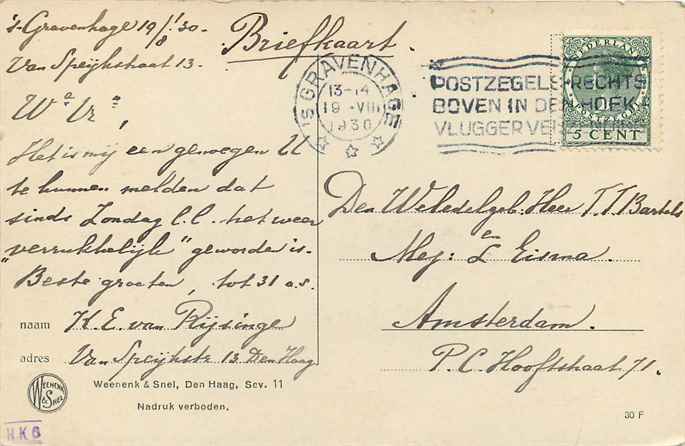 's-Gravenhage 19/8 '30.
Briefkaart.
Van Speijkstraat 13.
Wa Vr e,
Het is mij een genoegen U
te kunnen melden dat
sinds Zondag l.l. het weer
"verrukkelijk" geworden is.
Beste groeten, tot 31 a.s.
naam K. E. van Rijsinge
adres Van Speijkstr 13. Den Haag
Weenenk & Snel, Den Haag, Sev. 11
Nadruk verboden.
WEENENK & SNEL
H.K6
'S GRAVENHAGE
13-14
19 -VIII
1930
POSTZEGELS RECHTS
BOVEN IN DEN HOEK
VLUGGER
NEDERLAND
5 CENT
Den Weledelgeb. Heer T. T. Bartels
en
Mej: L Eisma.
Amsterdam.
P.C. Hooftstraat 71.
30 F